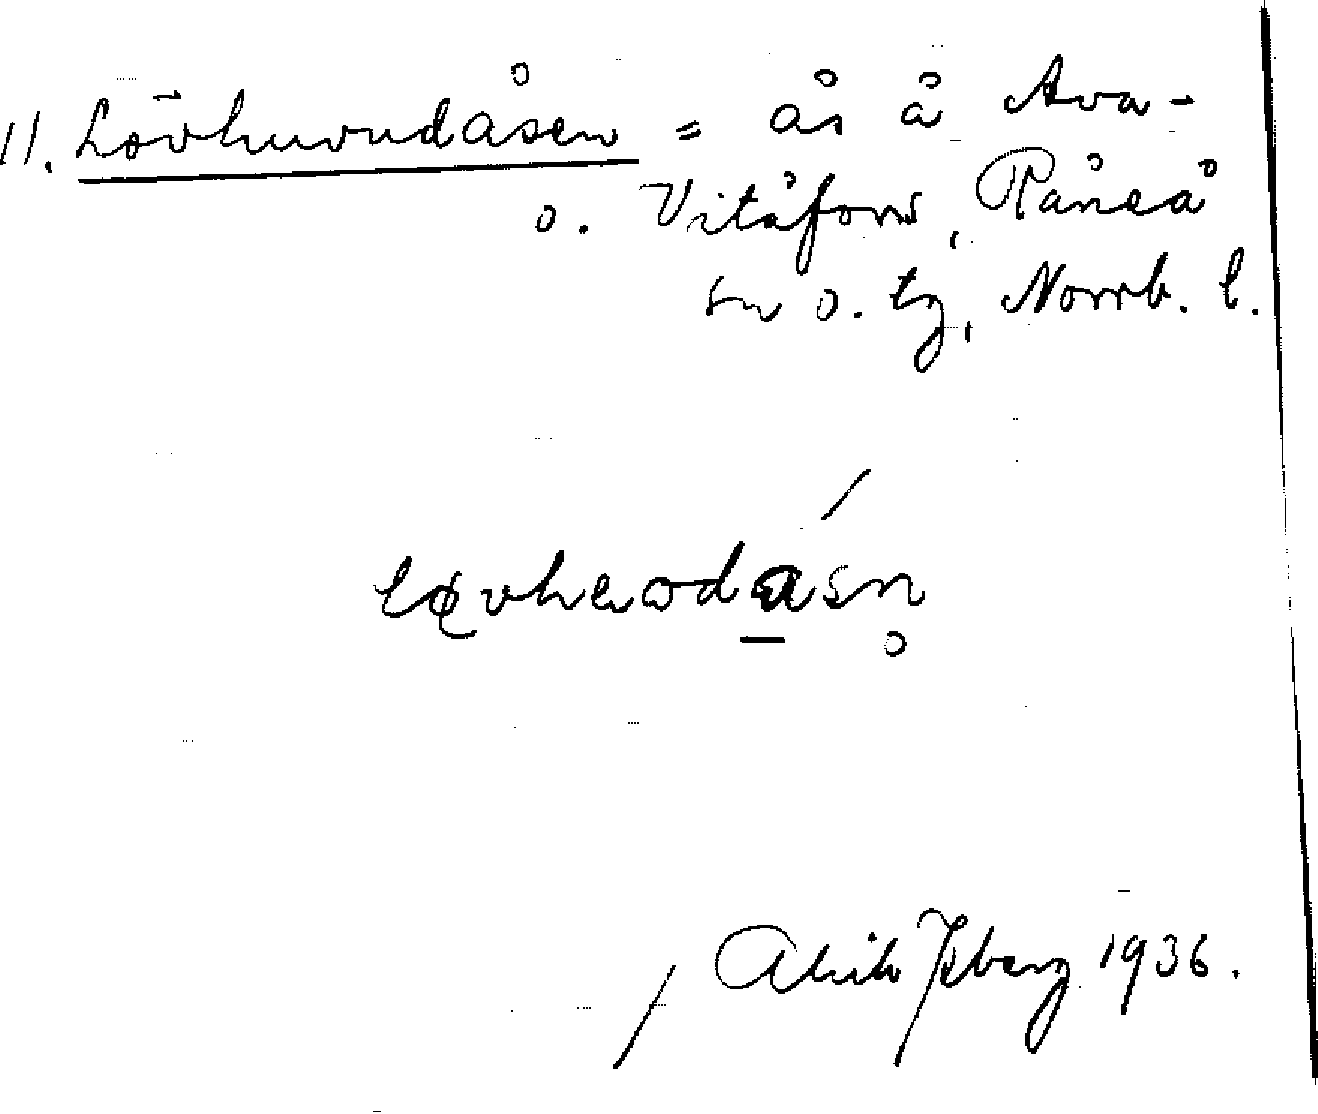 11. Lövhuvudåsen = ås å Ava-
o. Vitåfors, Råneå
sn o. tg, Norrb. l.
Isberg 1936.